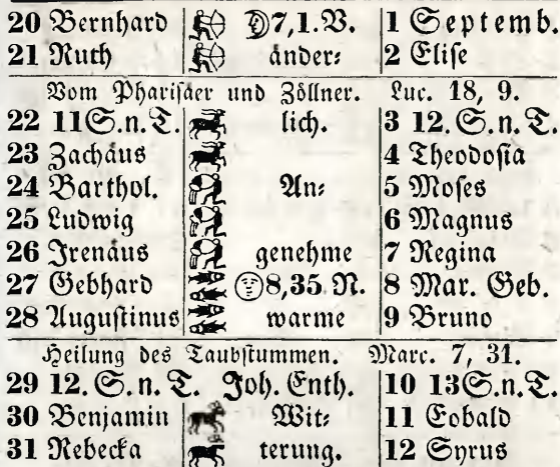 20 Bernhard 7,1.V. 1 Septemb.
21 Ruth änder: 2 Elise
Vom Pharisäer und Zöllner. Luc. 18, 9.
22 11S.n.T. lich. 3 12.S.n.T.
23 Zachäus 4 Theodosia
24 Barthol. An: 5 Moses
25 Ludwig 6 Magnus
26 Irenäus genehme 7 Regina
27 Gebhard 8,35.N. 8 Mar. Geb.
28 Augustinus warme 9 Bruno
Heilung des Taubstummen. Marc. 7, 31.
29 12.S.n.T. Joh. Enth. 10 13S.n.T.
30 Benjamin Wit: 11 Eobald
31 Rebecka terung. 12 Syrus